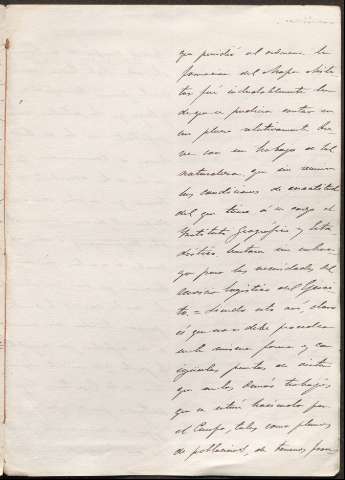 que presidió al ordenar la
formacion del Mapa Mili-
tar fué indudablemente la
de que se pudiera contar en
un plazo relativamente bre
ve con un trabajo de tal
naturaleza, que sin reunir
las condiciones de exactitud
del que tiene á su cargo el
Instituto Geográfico y Esta
dístico, bastara sin embar-
go para las necesidades del
servicio logístico del Ejerci-
to. = Siendo esto así, claro
és que no se debe proceder
en la misma forma y con
iguales puntos de vista
que en los demás trabajos
que se están haciendo por
el Cuerpo, tales como planos
de poblacion, de terrenos